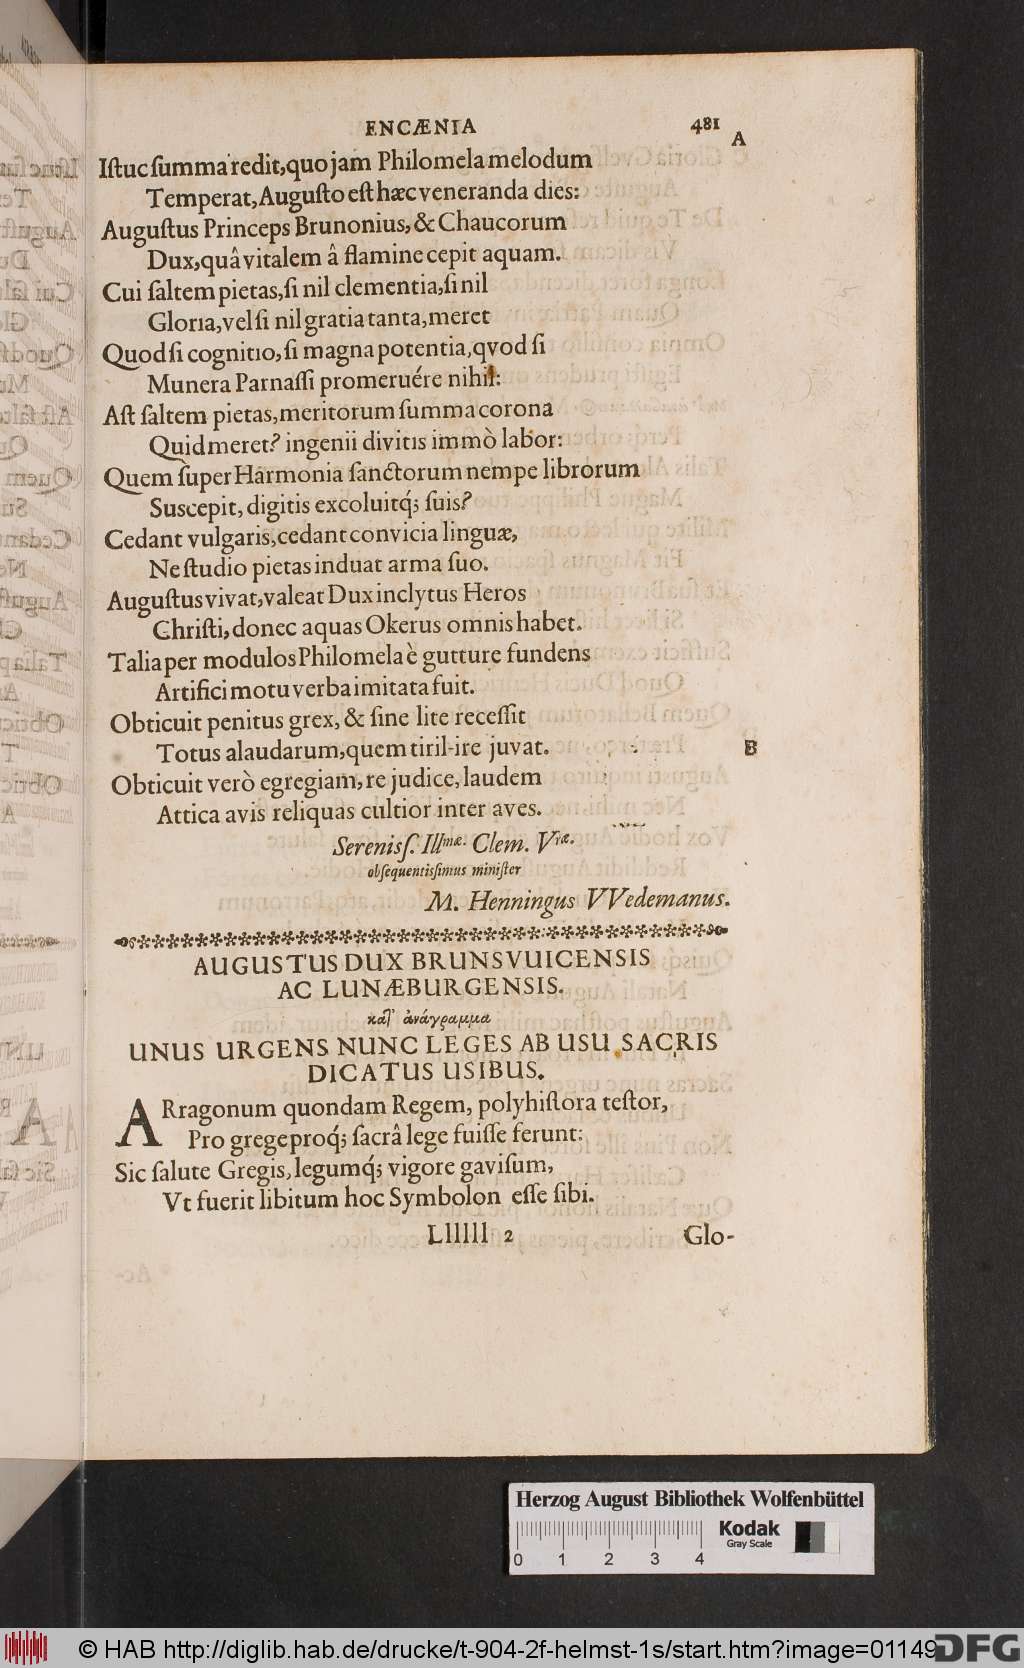 ENCÆNIA 481
A
Iſtuc ſumma redit, quo jam Philomela melodum
Temperat, Auguſto eſt hæc veneranda dies:
Auguſtus Princeps Brunonius, & Chaucorum
Dux, quâ vitalem â flamine cepit aquam.
Cui ſaltem pietas, ſi nil clementia, ſi nil
Gloria, vel ſi nil gratia tanta, meret
Quod ſi cognitio, ſi magna potentia, qvod ſi
Munera Parnaſſi promeruére nihil:
Aſt ſaltem pietas, meritorum ſumma corona
Quid meret? ingenii divitis immò labor:
Quem ſuper Harmonia ſanctorum nempe librorum
Suscepit, digitis excoluitq́; ſuis?
Cedant vulgaris, cedant convicia linguæ,
Ne ſtudio pietas induat arma ſuo.
Auguſtus vivat, valeat Dux inclytus Heros
Chriſti, donec aquas Okerus omnis habet.
Talia per modulos Philomela è gutture fundens
Artifici motu verba imitata fuit.
Obticuit penitus grex, & ſine lite receſſit
Totus alaudarum, quem tiril-ire juvat.
B
Obticuit verò egregiam, re judice, laudem
Attica avis reliquas cultior inter aves.
Serenisſ. Illmæ. Clem. Vræ.
obſequentisſimus miniſter
M. Henningus VVedemanus.
AUGUSTUS DUX BRUNSVUICENSIS
AC LUNÆBURGENSIS.
κατ' ἀνάγραμμα
UNUS URGENS NUNC LEGES AB USU SACRIS
DICATUS USIBUS.
ARragonum quondam Regem, polyhiſtora teſtor,
Pro grege proq́; ſacrâ lege fuiſſe ferunt:
Sic ſalute Gregis, legumq́; vigore gaviſum,
Vt fuerit libitum hoc Symbolon eſſe ſibi.
Llllll 2 Glo-
Herzog August Bibliothek Wolfenbüttel
Kodak
Gray Scale
0 1 2 3 4
© HAB http://diglib.hab.de/drucke/t-904-2f-helmst-1s/start.htm?image=01149
DFG